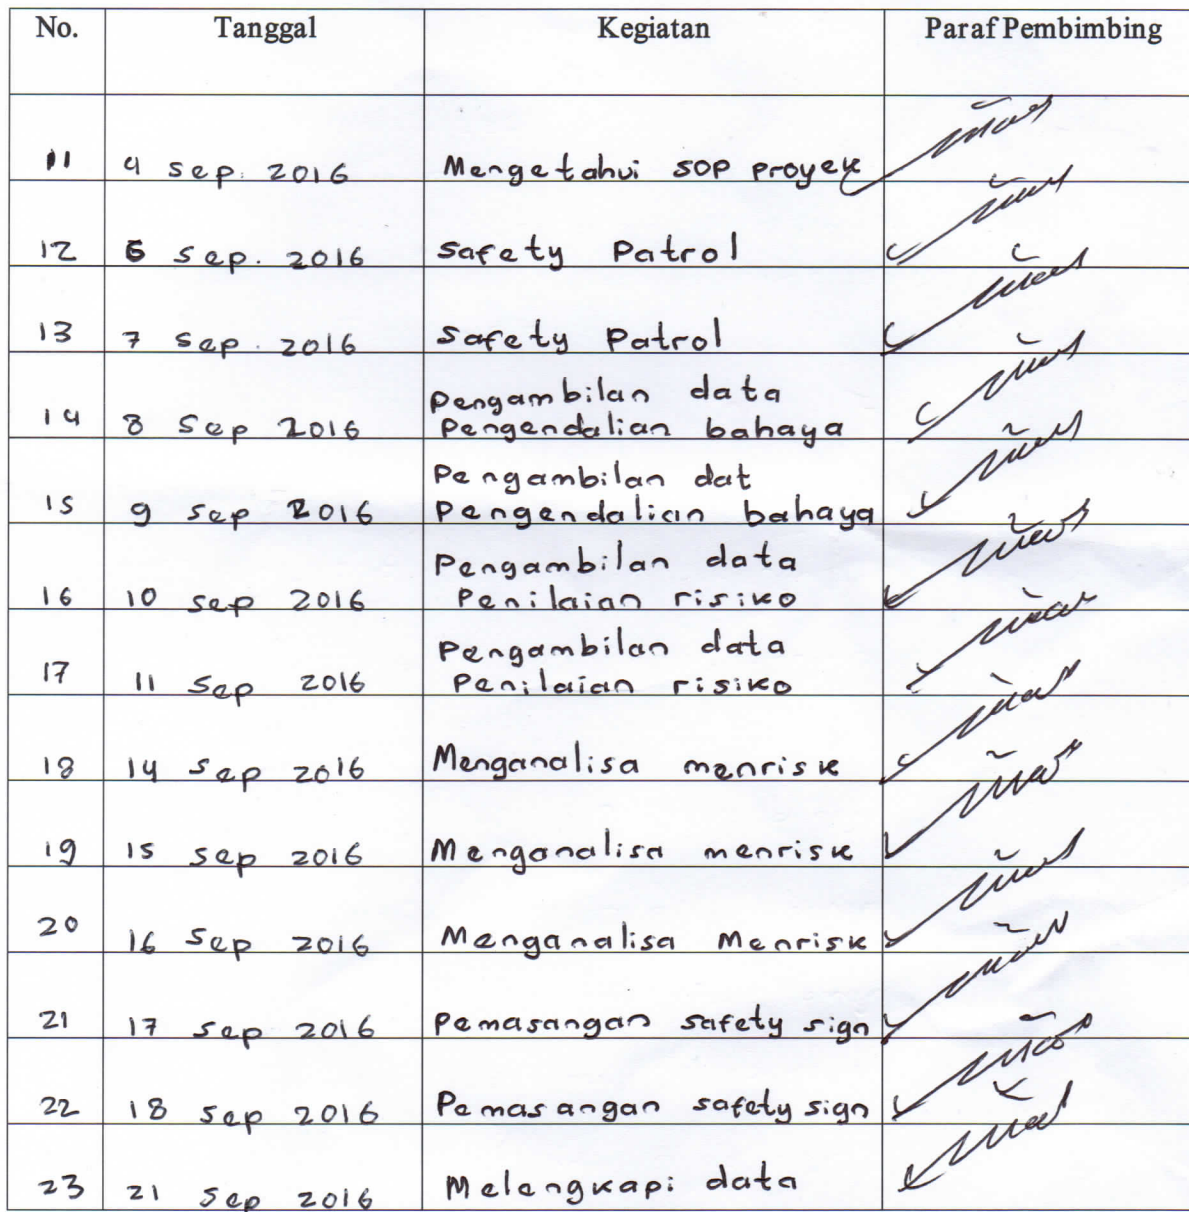 No. Tanggal Kegiatan Paraf Pembimbing
11 4 Sep. 2016 Mengetahui SOP proyek
12 6 Sep. 2016 Safety Patrol
13 7 Sep. 2016 Safety Patrol
Pengambilan data
14 8 Sep 2016 Pengendalian bahaya
Pengambilan dat
15 9 Sep 2016 Pengendalian bahaya
Pengambilan data
16 10 Sep 2016 Penilaian risiko
Pengambilan data
17 11 Sep 2016 Penilaian risiko
18 14 Sep 2016 Menganalisa menrisk
19 15 Sep 2016 Menganalisa menrisk
20 16 Sep 2016 Menganalisa Menrisk
21 17 Sep 2016 Pemasangan safety sign
22 18 Sep 2016 Pemasangan safety sign
23 21 Sep 2016 Melengkapi data